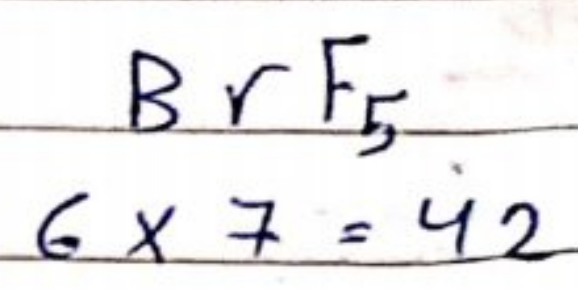 BrF₅
6 x 7 = 42